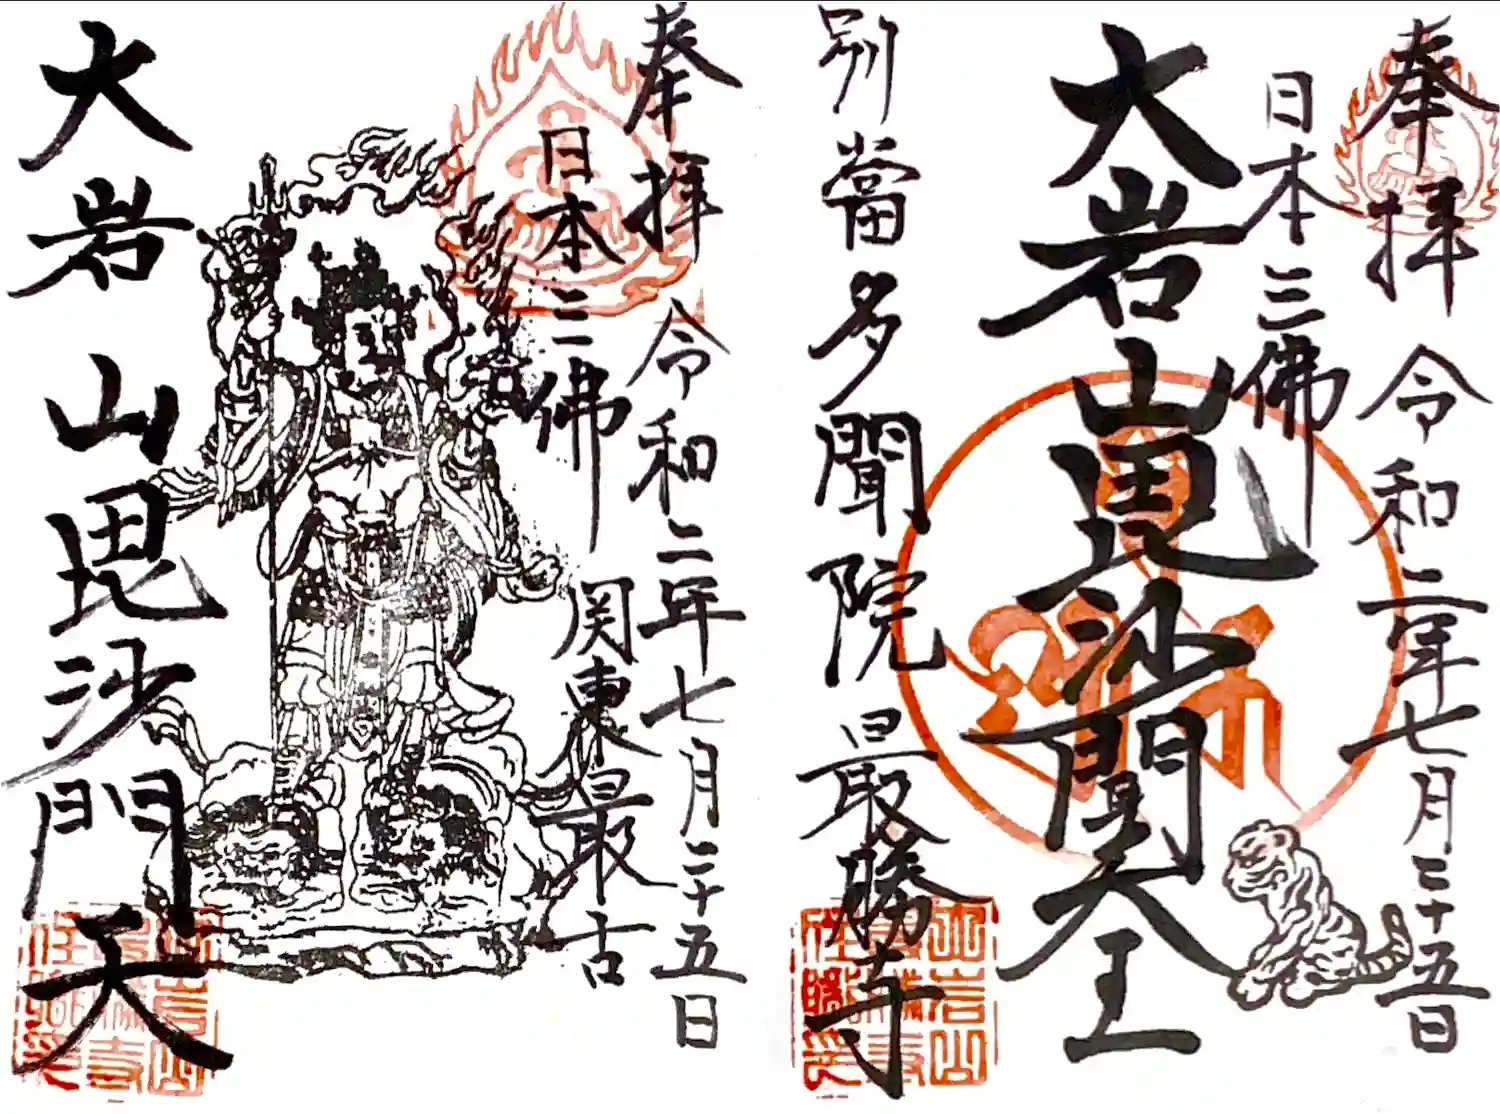 奉拝
日本三佛
令和二年七月二十五日
大岩山毘沙門天王
別當多聞院最勝寺
奉拝
日本三佛
令和二年七月二十五日
関東最古
大岩山毘沙門天